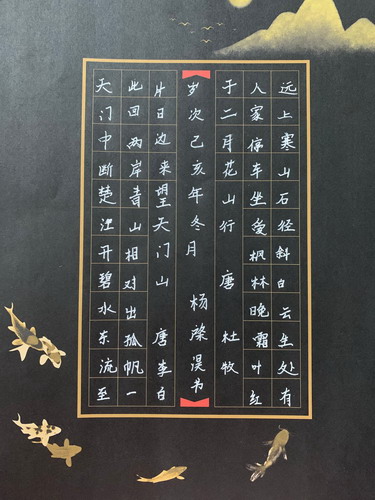 远上寒山石径斜白云生处有
人家停车坐爱枫林晚霜叶红
于二月花山行 唐 杜牧
天门中断楚江开碧水东流至
此回两岸青山相对出孤帆一
片日边来望天门山 唐李白
岁次己亥年冬月 杨 书